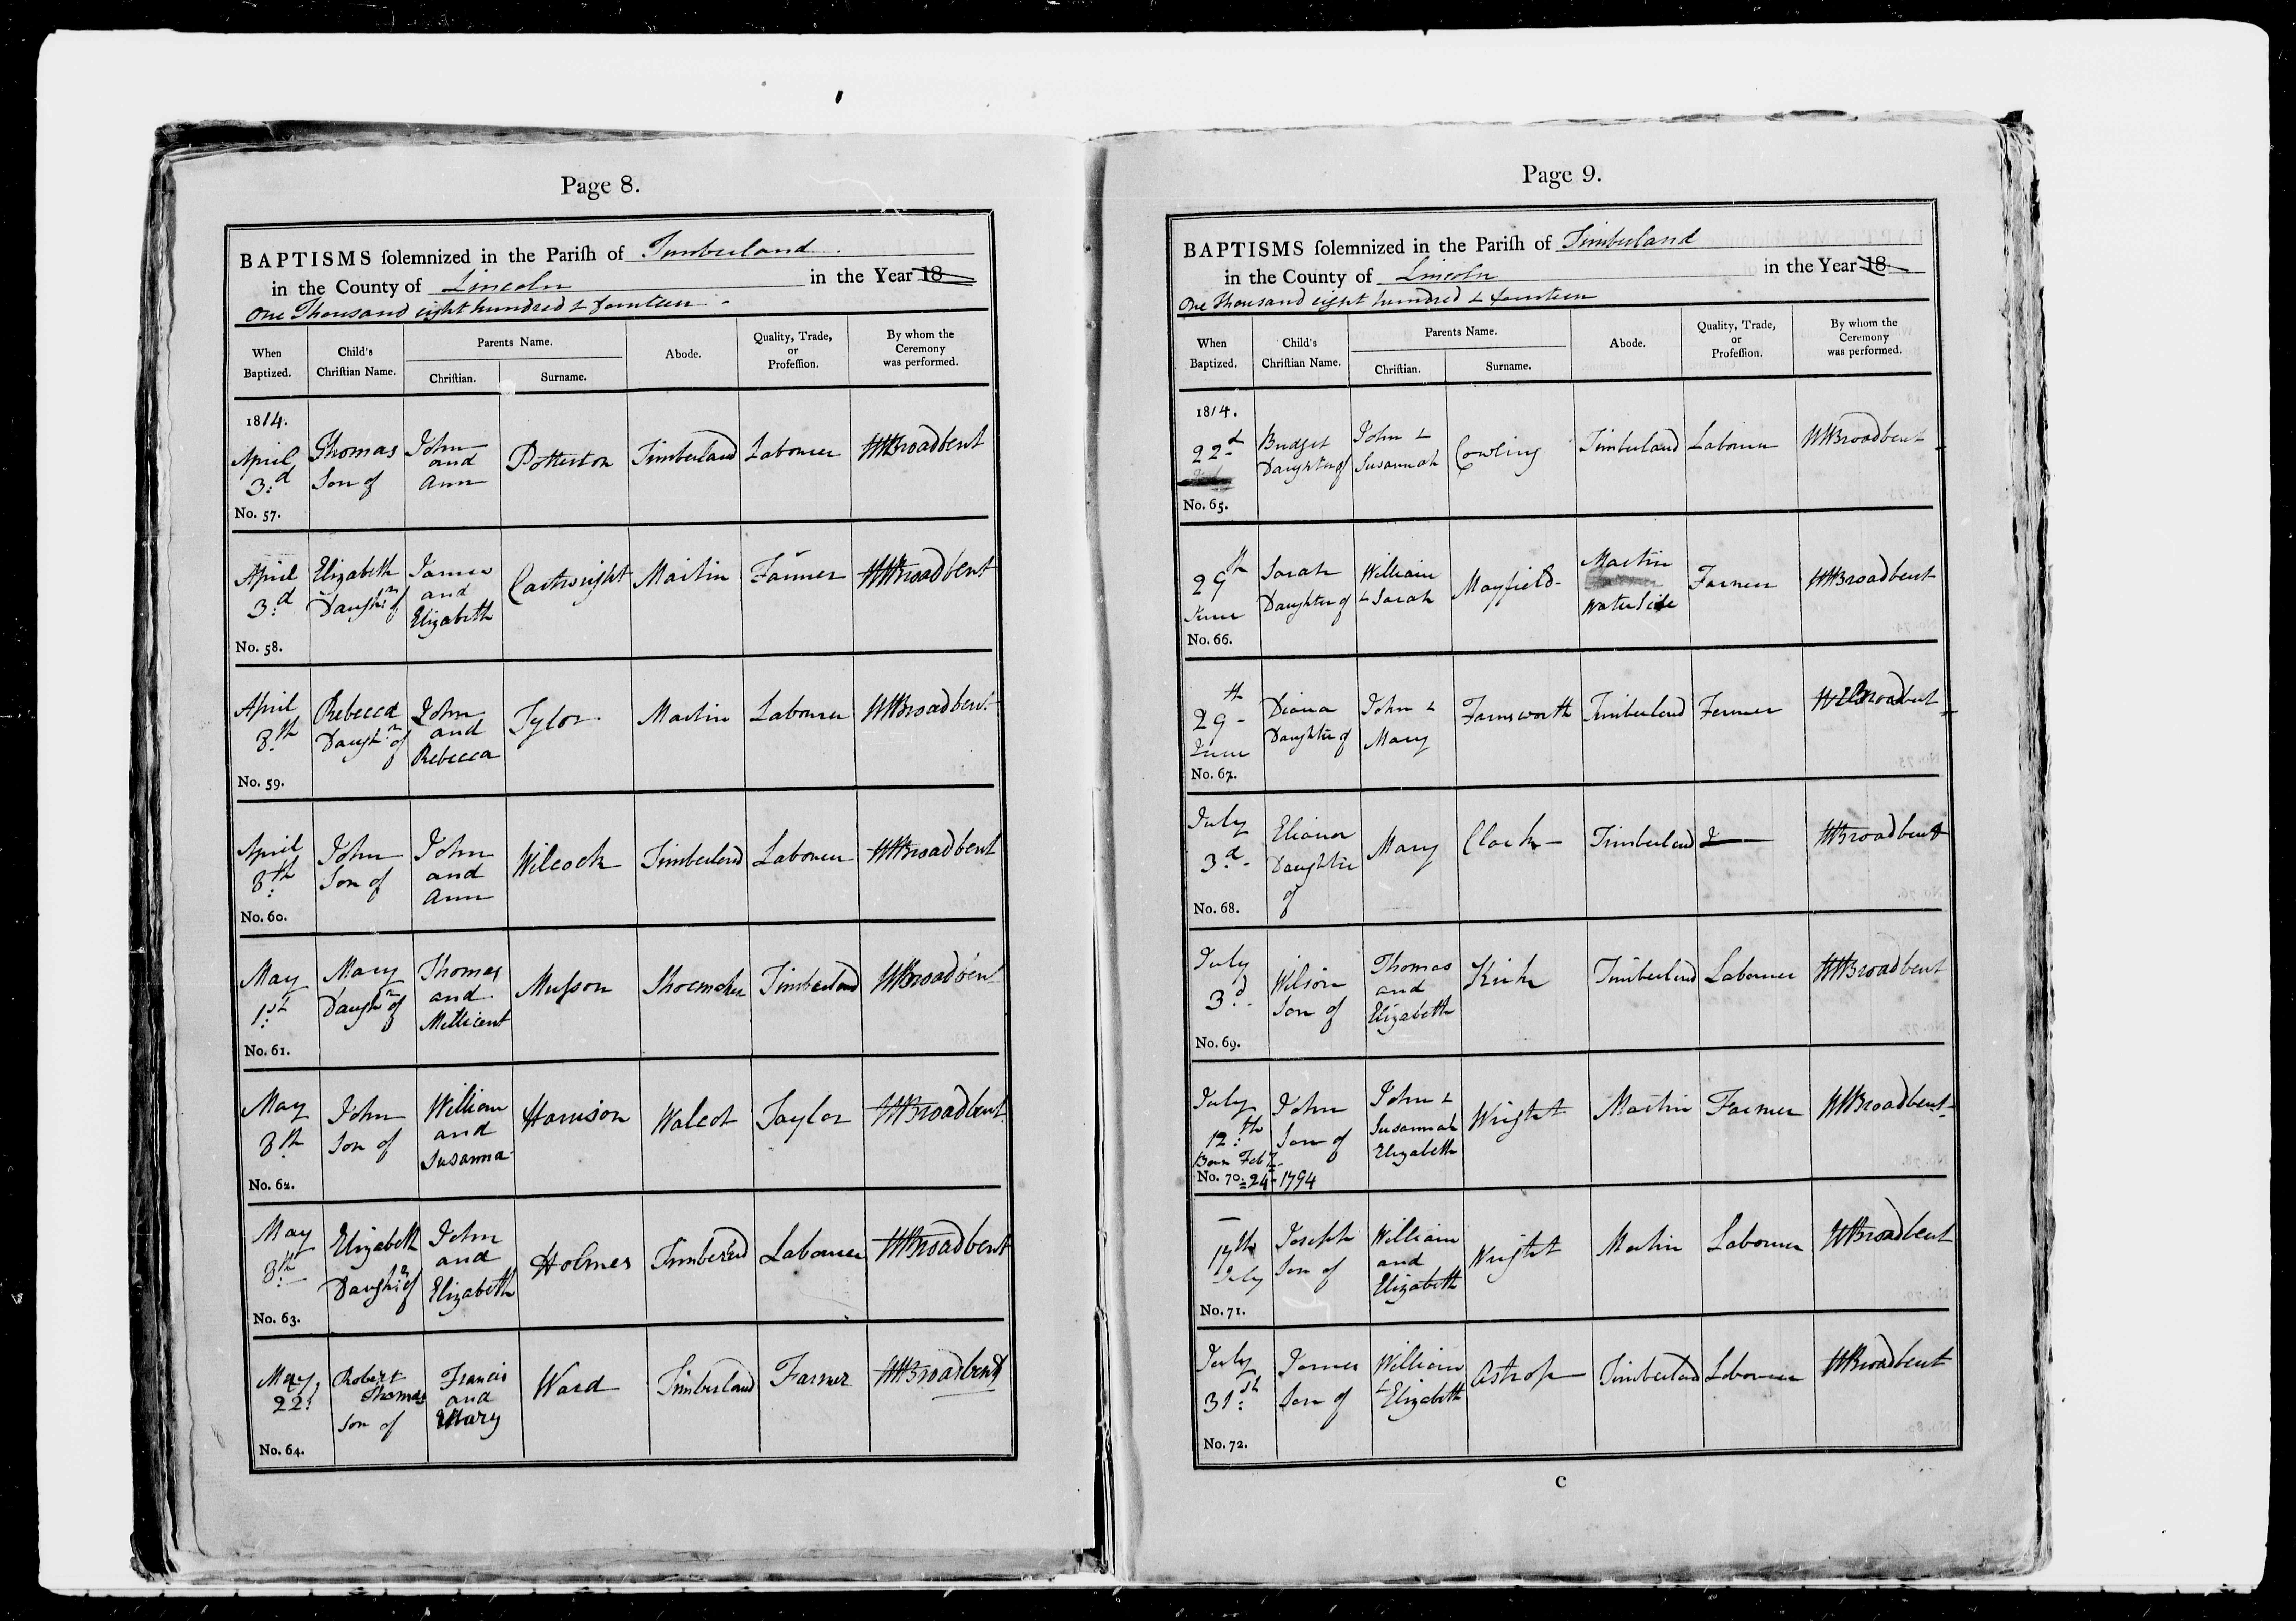 Page 8.
BAPTISMS ſolemnized in the Pariſh of Timberland
in the County of Lincoln in the Year 18
One Thousand eight hundred & fourteen
When Baptized. Child's Chriſtian Name. Parents Name. Chriſtian. Surname. Abode. Quality, Trade, or Profeſſion. By whom the Ceremony was performed.
1814.
April Thomas John Potterton Timberland Labourer WBroadbent
3.d Son of and
Ann
No. 57.
April Elizabeth James Cartwright Martin Farmer WBroadbent
3.d Daughr. of and
Elizabeth
No. 58.
April Rebecca John Tylor Martin Labourer WBroadbent
8.th Daughr. of and
Rebecca
No. 59.
April John John Wilcock Timberland Labourer WBroadbent
8th Son of and
Ann
No. 60.
May Mary Thomas Muſson Shoemaker Timberland WBroadbent
1st Daughr of and
Millicent
No. 61.
May John William Harrison Walcot Taylor WBroadbent
8th Son of and
Susanna
No. 62.
May Elizabeth John Holmes Timberland Labourer WBroadbent
8th Daughr. of and
Elizabeth
No. 63.
May Robert Francis Ward Timberland Farmer WBroadbent
22: Thomas and
Son of Mary
No. 64.
Page 9.
BAPTISMS ſolemnized in the Pariſh of Timberland
in the County of Lincoln in the Year 18
One Thousand eight hundred & fourteen
When Baptized. Child's Chriſtian Name. Parents Name. Chriſtian. Surname. Abode. Quality, Trade, or Profeſſion. By whom the Ceremony was performed.
1814.
22d Bridget John & Cowling Timberland Labourer WBroadbent
Daughter of Susannah
No. 65.
29th Sarah William Mayfield Martin Farmer WBroadbent
June Daughter of & Sarah Waterside
No. 66.
29th Diana John & Farnsworth Timberland Farmer WBroadbent
June Daughter of Mary
No. 67.
July Elianor Mary Clark Timberland WBroadbent
3d Daughter
of
No. 68.
July Wilson Thomas Kirk Timberland Labourer WBroadbent
3d Son of and
Elizabeth
No. 69.
July John John & Wright Martin Farmer WBroadbent
12:th Son of Susannah
Born Feby Elizabeth
No. 70. 24 1794
17th Joseph William Wright Martin Labourer WBroadbent
July Son of and
Elizabeth
No. 71.
July James William Astrop Timberland Labourer WBroadbent
31st Son of & Elizabeth
No. 72.
C